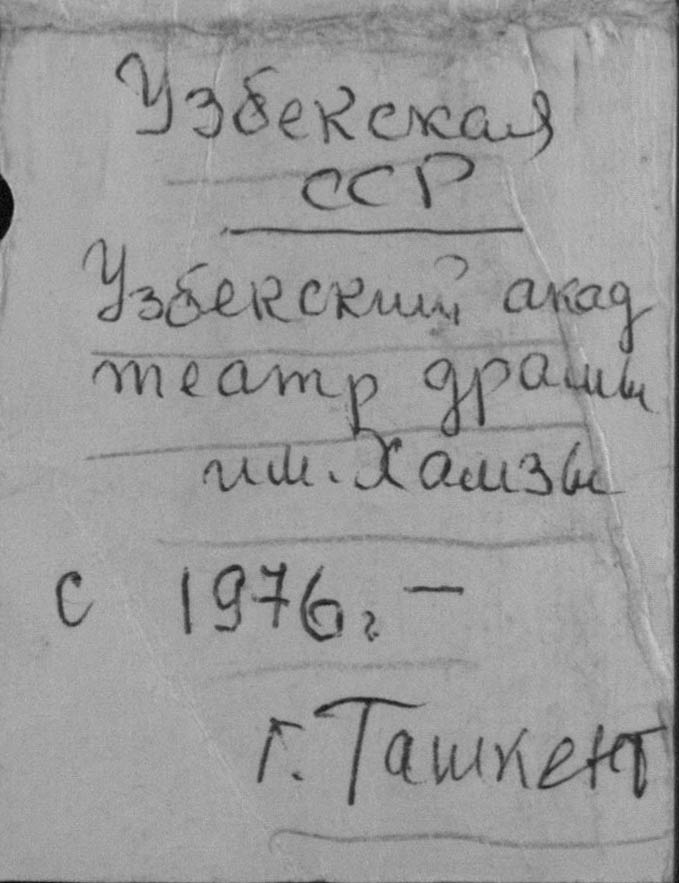 Узбекская
ССР
Узбекский акад
театр драмы
им. Хамзы
с 1976г –
г. Ташкент